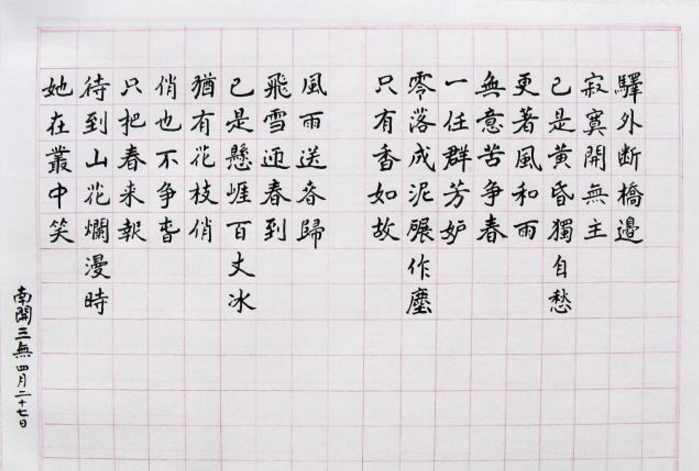 驛外断橋邉
寂寞開無主
已是黄昏獨自愁
更著風和雨
無意苦争春
一任群芳妒
零落成泥碾作塵
只有香如故
風雨送春歸
飛雪迎春到
已是懸崖百丈冰
猶有花枝俏
俏也不争春
只把春来報
待到山花爛漫時
她在叢中笑
南開三無 四月二十七日